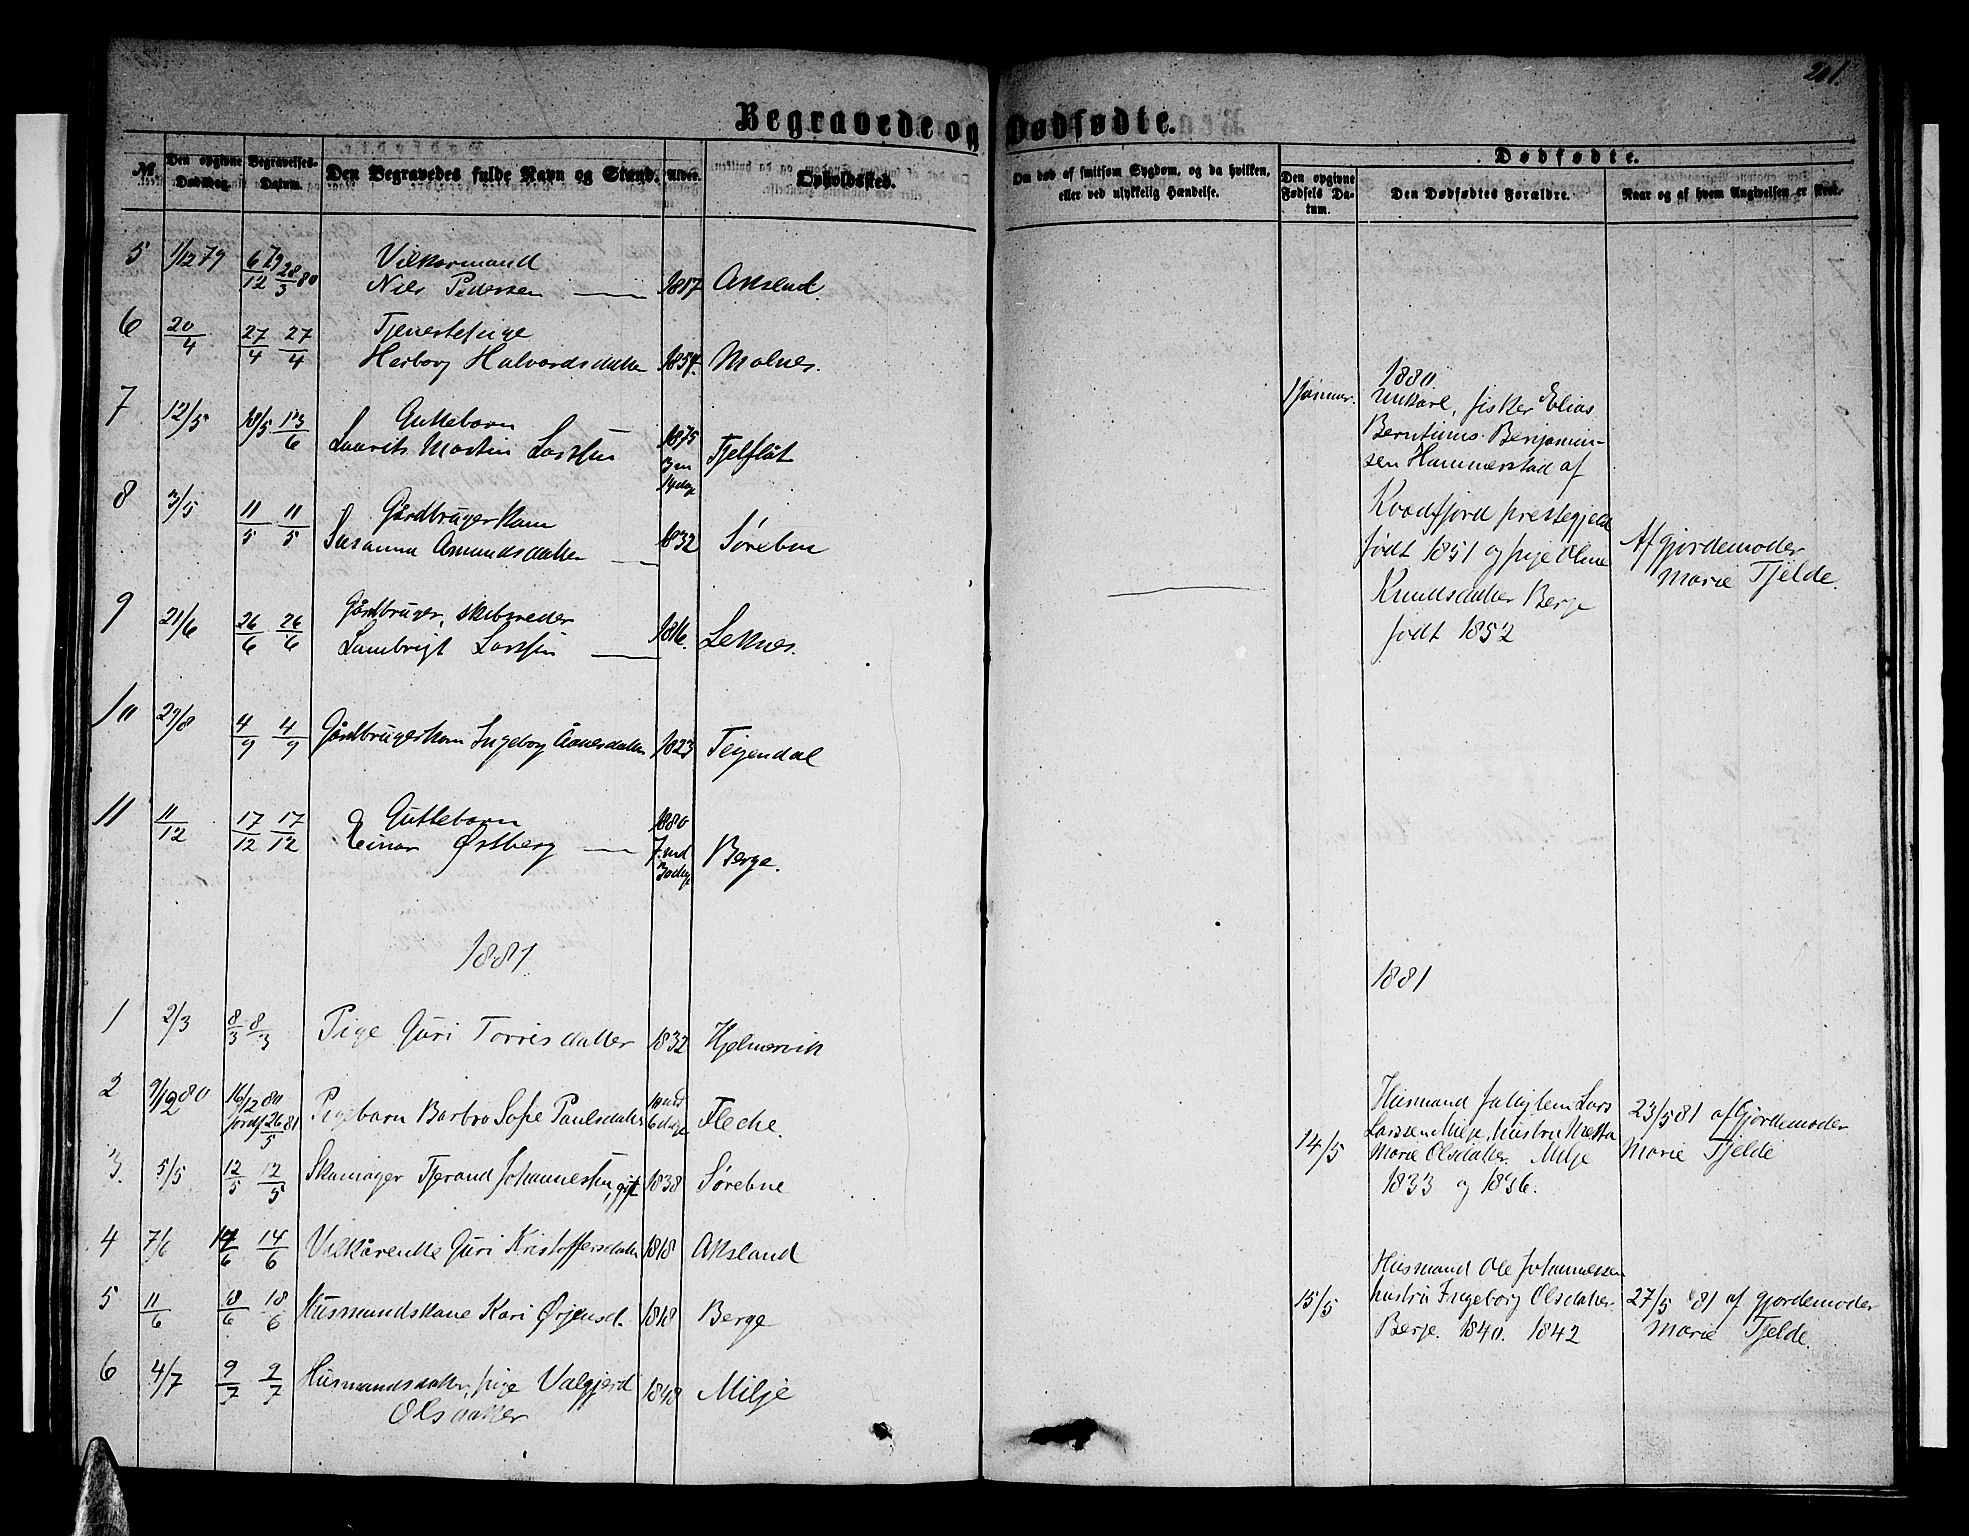 201.
Begravede og Dødfødte.
№
Den opgivne Dødsdag.
Begravelses-Datum.
Den Begravedes fulde Navn og Stand.
Alder.
Opholdssted.
Om død af smitsom Sygdom, og da hvilken, eller ved ulykkelig Hændelse.
Dødfødte.
Den opgivne Fødsels Datum.
Den Dødfødtes Forældre.
Naar og af hvem Angivelsen er skeet.
5 1/12 79 6/12 79 28/3 80 Vilkormand
Nils Pedersen 1817 Aksland.
6 20/4 27/4 27/4 Tjenestepige
Herborg Halvordsdatter 1854. Molnes.
7 12/5 18/5 13/6 Guttebarn
Laurits Martin Larssen 1875 Tjelflåt
8 3/5 11/5 11/5 Gårdbrugerkone
Susanna Amundsdatter 1832 Sørebø
9 21/6 26/6 26/6 Gårdbruger, skibsreder
Lambrigt Larssen 1816. Leknes.
10 29/8 4/9 4/9 Gårdbrugerkone Ingeborg Aanesdatter 1823 Teigendal
11 11/12 17/12 17/12 Guttebarn
Einar Østberg 1880 Berge.
1881
1 2/3 8/3 8/3 Pige Guri Torrisdatter 1832 Hjelmervik
2 9/12 80 16/12 80 jordf 26/5 81 Pigebarn Barbra Sofie Paulsdatter 6 dage Fleche
3. 5/5 12/5 12/5 Skomager Tjerand Johannessen, gift 1838 Sørebne
4 7/6 14/6 14/6 Vilkårenke Guri Kristoffersdatter 1818 Aksland
5 11/6 18/6 18/6 Husmandskone Kari Ørjensd. 1818 Berge
6 4/7 9/7 9/7 Husmandsdatter, pige Valgjerd 1848 Milje
Olsdatter
1880
1 Januar. Unkarl, fisker Elias
Berntinus Benjamin-
sen Hammerstad af
Kvadfjord prestegjeld
født 1851 og pige Oline
Knudsdatter Berge
født 1852
Af gjordemoder
Marie Tjelde.
1881
14/5 Husmand Lars
Larssen Milje, hustru
Marie Olsdatter. Milje
1833 og 1836.
23/5 81 af Gjordemoder
Marie Tjelde
15/5 Husmand Ole Johannessen
hustru Ingeborg Olsdatter
Berge. 1840. 1842
27/5 81 af gjordemoder
Marie Tjelde.